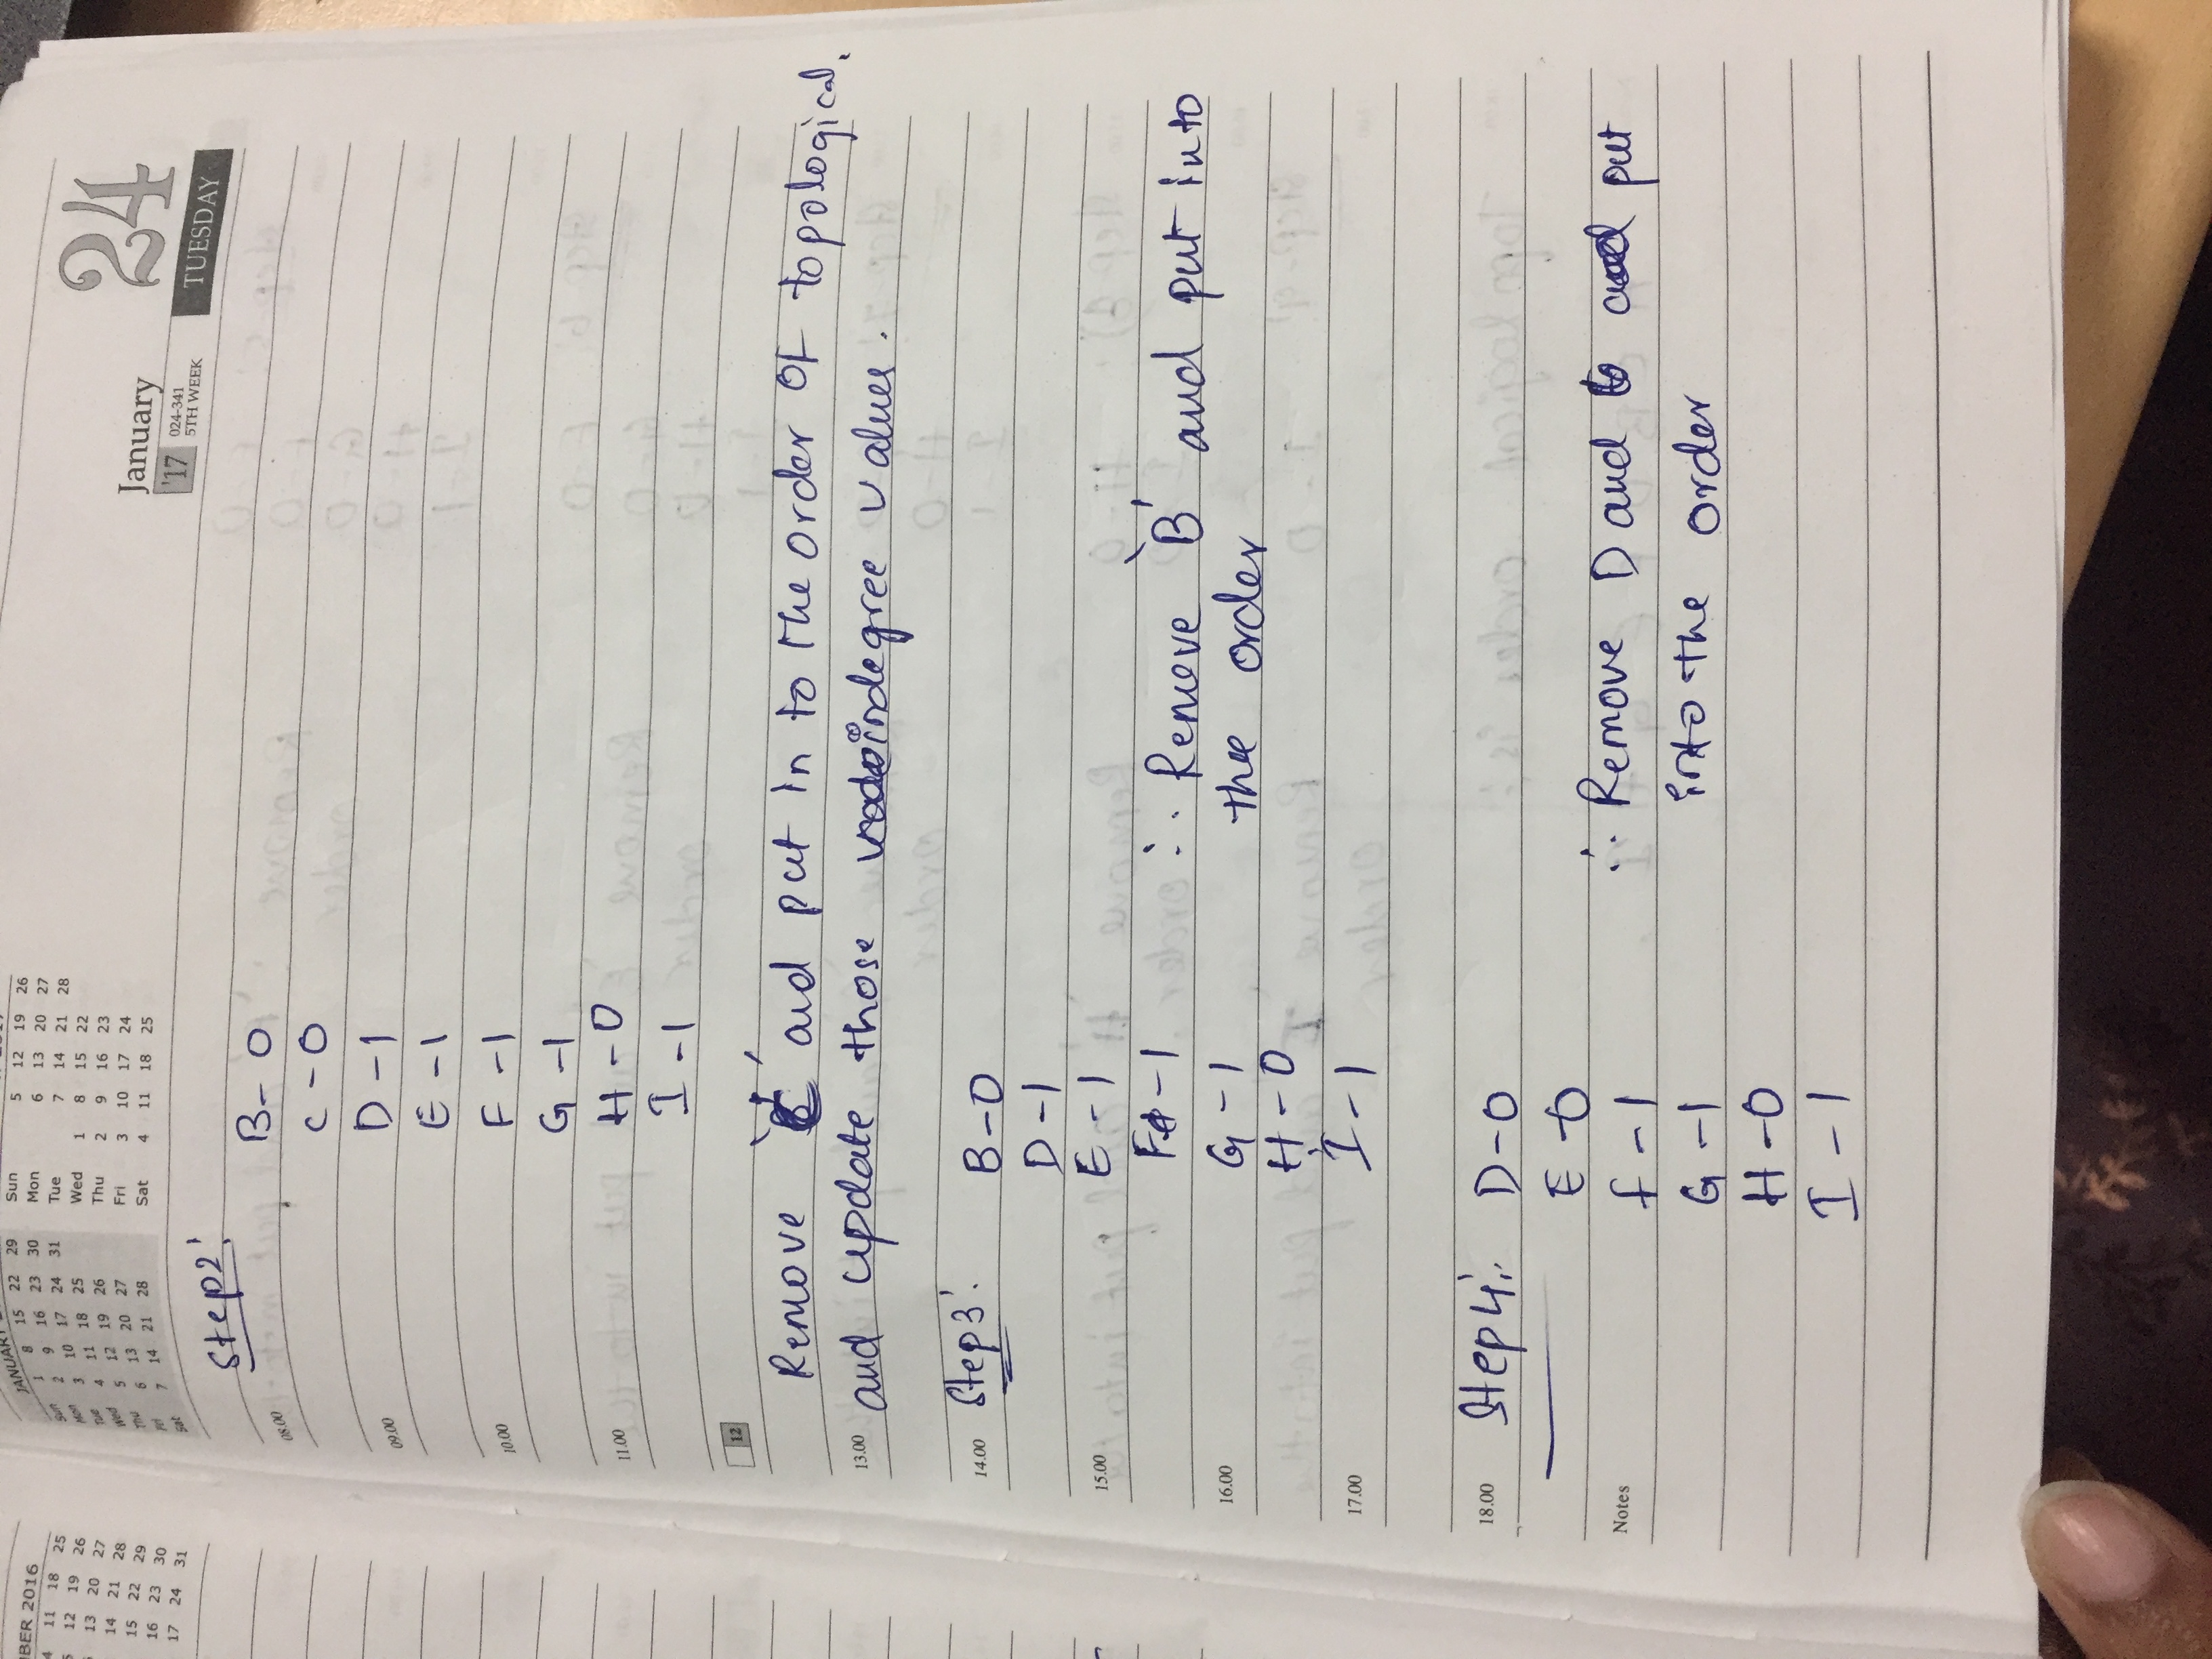 BER 2016
4 11 18 25
5 12 19 26
13 20 27
14 21 28
15 22 29
16 23 30
17 24 31
JANUARY
Sun 1 8 15 22 29
Mon 2 9 16 23 30
Tue 3 10 17 24 31
Wed 4 11 18 25
Thu 5 12 19 26
Fri 6 13 20 27
Sat 7 14 21 28
Sun 5 12 19 26
Mon 6 13 20 27
Tue 7 14 21 28
Wed 1 8 15 22
Thu 2 9 16 23
Fri 3 10 17 24
Sat 4 11 18 25
January 24
'17 024-341
5TH WEEK
TUESDAY
Step2:
B-0
08.00
C-0
D-1
09.00
E-1
F-1
10.00
G-1
H-0
11.00
I-1
12
Remove 'C' and put in to the order of topological.
13.00 and update those indegree values.
14.00 Step3: B-0
D-1
15.00 E-1
F-1 ∴ Remove 'B' and put into
16.00 G-1 the order
H-0
17.00 I-1
18.00 Step4: D-0
E-0
Notes f-1 ∴ Remove D and put
G-1 into the order
H-0
I-1